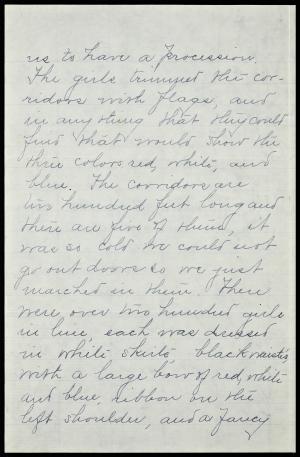 us to have a procession.
The girls trimmed the cor-
ridors with flags, and
in any thing that they could
find that would show the
three colors red, white, and
blue. The corridors are
two hundred feet long and
there are five of them, it
was so cold we could not
go out doors so we just
marched in them. There
were over two hundred girls
in line, each was dressed
in white skirts, black waists
with a large bow of red, white
and blue, ribbon on the
left shoulder, and a fancy